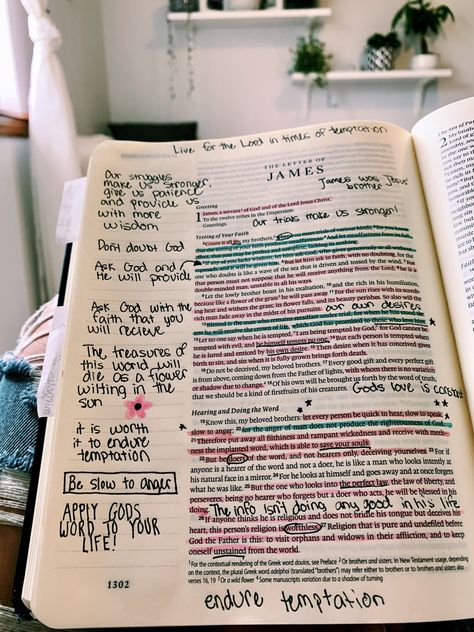 Live for the Lord in times of temptation
THE LETTER OF
JAMES
James was Jesus'
brother
Our struggles
make us stronger,
give us patience
and provide us
with more
wisdom
Don't doubt God
Ask God and
He will provide
Ask God with the
faith that you
will recieve
The treasures of
this world will
die as a flower
wilting in the
sun
it is worth
it to endure
temptation
Be slow to anger
APPLY GODS
WORD TO YOUR
LIFE!
1302
Greeting
1 James, a servant of God and of the Lord Jesus Christ,
To the twelve tribes in the Dispersion:
Greetings.
Our trials make us stronger!
Testing of Your Faith
Count it all joy, my brothers, when you meet trials of various kinds, for you know
that the testing of your faith produces steadfastness. And let steadfastness have its
full effect, that you may be perfect and complete, lacking in nothing.
If any of you lacks wisdom, let him ask God, who gives generously to all without
reproach, and it will be given him. But let him ask in faith, with no doubting, for the
one who doubts is like a wave of the sea that is driven and tossed by the wind. For
that person must not suppose that he will receive anything from the Lord; he is a
double-minded man, unstable in all his ways.
Let the lowly brother boast in his exaltation, and the rich in his humiliation,
because like a flower of the grass he will pass away. For the sun rises with its scorch-
ing heat and withers the grass; its flower falls, and its beauty perishes. So also will the
rich man fade away in the midst of his pursuits.
our own desires
Blessed is the man who remains steadfast under trial, for when he has stood the
test he will receive the crown of life, which God has promised to those who love him.
Let no one say when he is tempted, "I am being tempted by God," for God cannot be
tempted with evil, and he himself tempts no one. But each person is tempted when
he is lured and enticed by his own desire. Then desire when it has conceived gives
birth to sin, and sin when it is fully grown brings forth death.
Do not be deceived, my beloved brothers. Every good gift and every perfect gift
is from above, coming down from the Father of lights, with whom there is no variation
or shadow due to change. Of his own will he brought us forth by the word of truth,
that we should be a kind of firstfruits of his creatures.
Gods love is constant
Hearing and Doing the Word
Know this, my beloved brothers: let every person be quick to hear, slow to speak,
slow to anger; for the anger of man does not produce the righteousness of God.
Therefore put away all filthiness and rampant wickedness and receive with meek-
ness the implanted word, which is able to save your souls.
But be doers of the word, and not hearers only, deceiving yourselves. For if
anyone is a hearer of the word and not a doer, he is like a man who looks intently at
his natural face in a mirror. For he looks at himself and goes away and at once forgets
what he was like. But the one who looks into the perfect law, the law of liberty, and
perseveres, being no hearer who forgets but a doer who acts, he will be blessed in his
doing.
The info isn't doing any good in his life
If anyone thinks he is religious and does not bridle his tongue but deceives his
heart, this person's religion is worthless. Religion that is pure and undefiled before
God the Father is this: to visit orphans and widows in their affliction, and to keep
oneself unstained from the world.
endure temptation